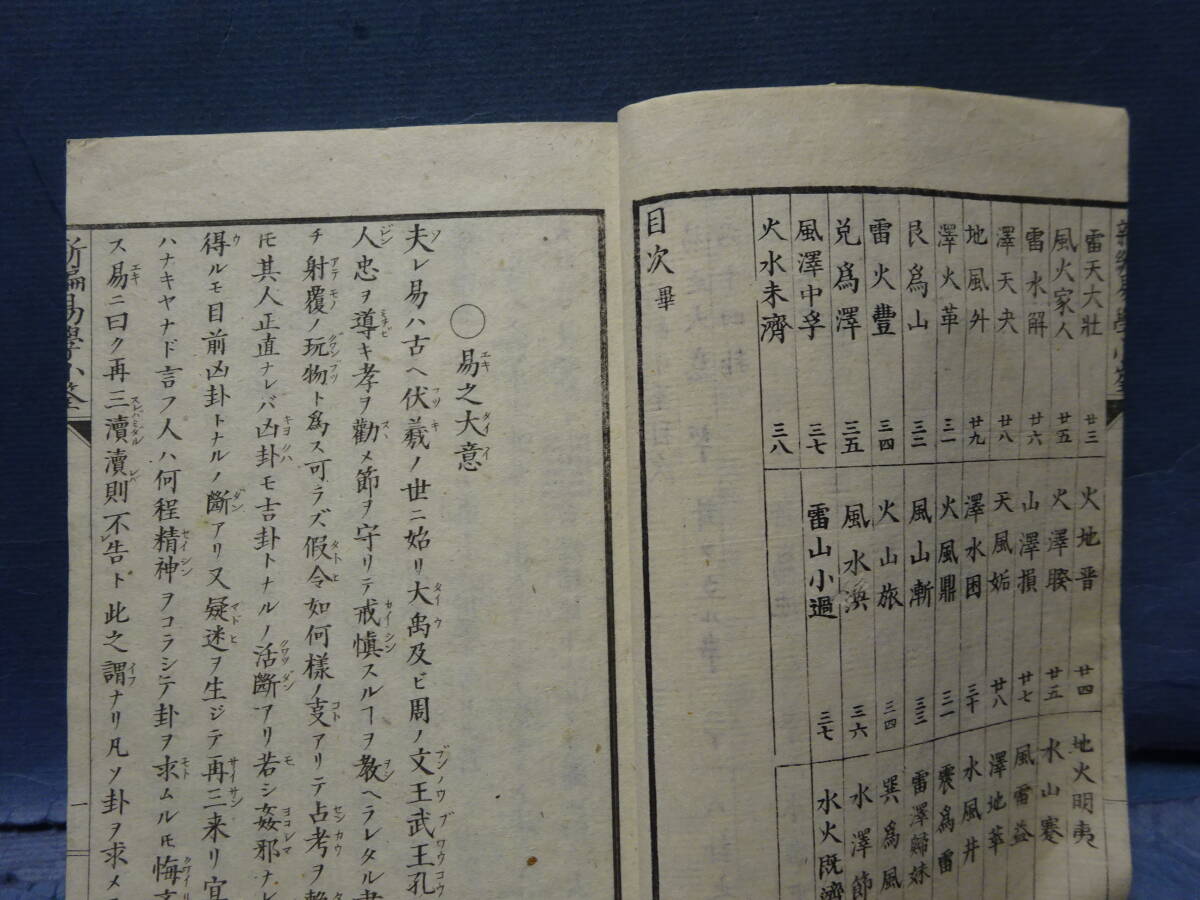 雷天大壯 廿三
風火家人 廿五
雷水解 廿六
澤天夬 廿八
地風升 廿九
澤火革 三一
艮爲山 三二
雷火豐 三四
兌爲澤 三五
風澤中孚 三七
火水未濟 三八
目次畢
火地晋 廿四
火澤睽 廿五
山澤損 廿七
天風姤 廿八
澤水困 三十
火風鼎 三一
風山漸 三三
火山旅 三四
風水渙 三六
雷山小過 三七
地火明夷
水山蹇
風雷益
澤地萃
水風井
震爲雷
雷澤歸妹
巽爲風
水澤節
水火既濟
〇易之大意
夫レ易ハ古ヘ伏羲ノ世ニ始リ大禹及ビ周ノ文王武王孔
人忠ヲ導キ孝ヲ勸メ節ヲ守リテ戒愼スルヿヲ教ヘラレタル
チ射覆ノ玩物ト爲ス可ラズ假令如何樣ノ叓アリテ占考ヲ
𪜈其人正直ナレバ凶卦モ吉卦トナルノ活斷アリ若シ姦邪ナレ
得ルモ目前凶卦トナルノ斷アリ又疑迷ヲ生ジテ再三来リ
ハナキヤナド言フ人ハ何程精神ヲコラシテ卦ヲ求ムル𪜈悔
ス易ニ曰ク再三瀆瀆則不告ト此之謂ナリ凡ソ卦ヲ求メ
新編易學小筌
一